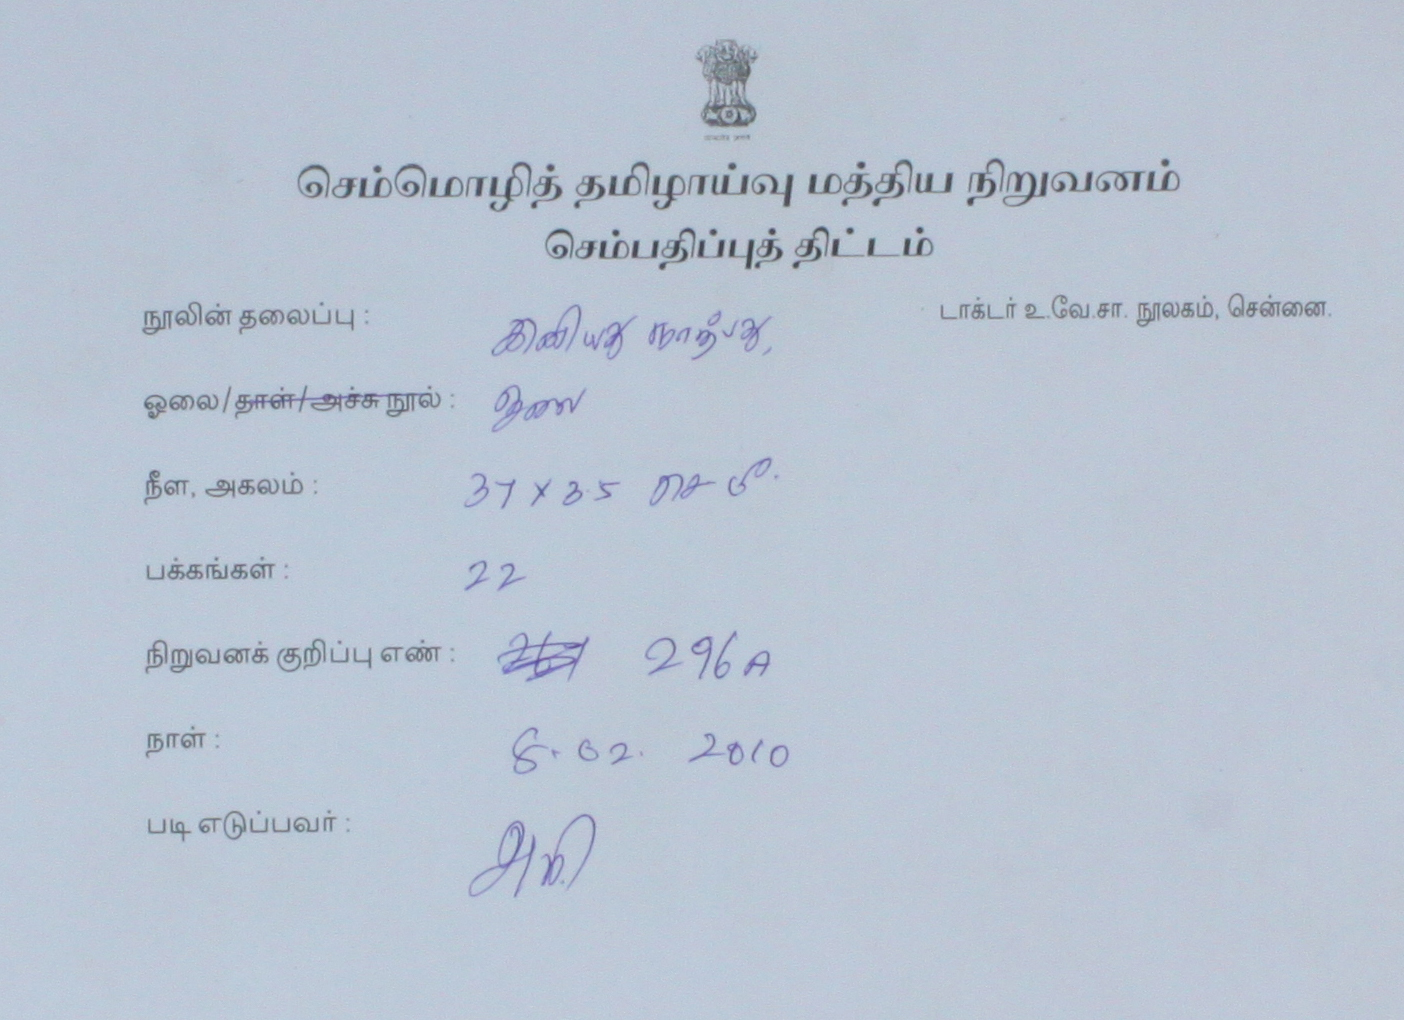 செம்மொழித் தமிழாய்வு மத்திய நிறுவனம்
செம்பதிப்புத் திட்டம்
டாக்டர் உ.வே.சா. நூலகம், சென்னை.
நூலின் தலைப்பு : இனியது நாற்பது,
ஓலை/தாள்/அச்சு நூல் : ஓலை
நீள, அகலம் : 37 x 3.5 செ மீ.
பக்கங்கள் : 22
நிறுவனக் குறிப்பு எண் : 296A
நாள் : 8.02. 2010
படி எடுப்பவர் :